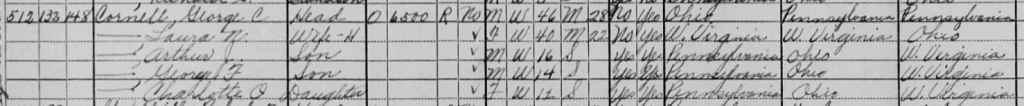 512 132 148 Cornell, George C Head O 6500 R No M W 46 M 28 No Yes Ohio Pennsylvania Pennsylvania
—, Laura N. Wife-H V F W 40 M 22 No Yes W. Virginia W. Virginia Ohio
—, Arthur Son V M W 16 S Yes Yes Pennsylvania Ohio W. Virginia
—, George F Son V M W 14 S Yes Yes Pennsylvania Ohio W. Virginia
—, Charlotte O Daughter V F W 12 S Yes Yes Pennsylvania Ohio W. Virginia